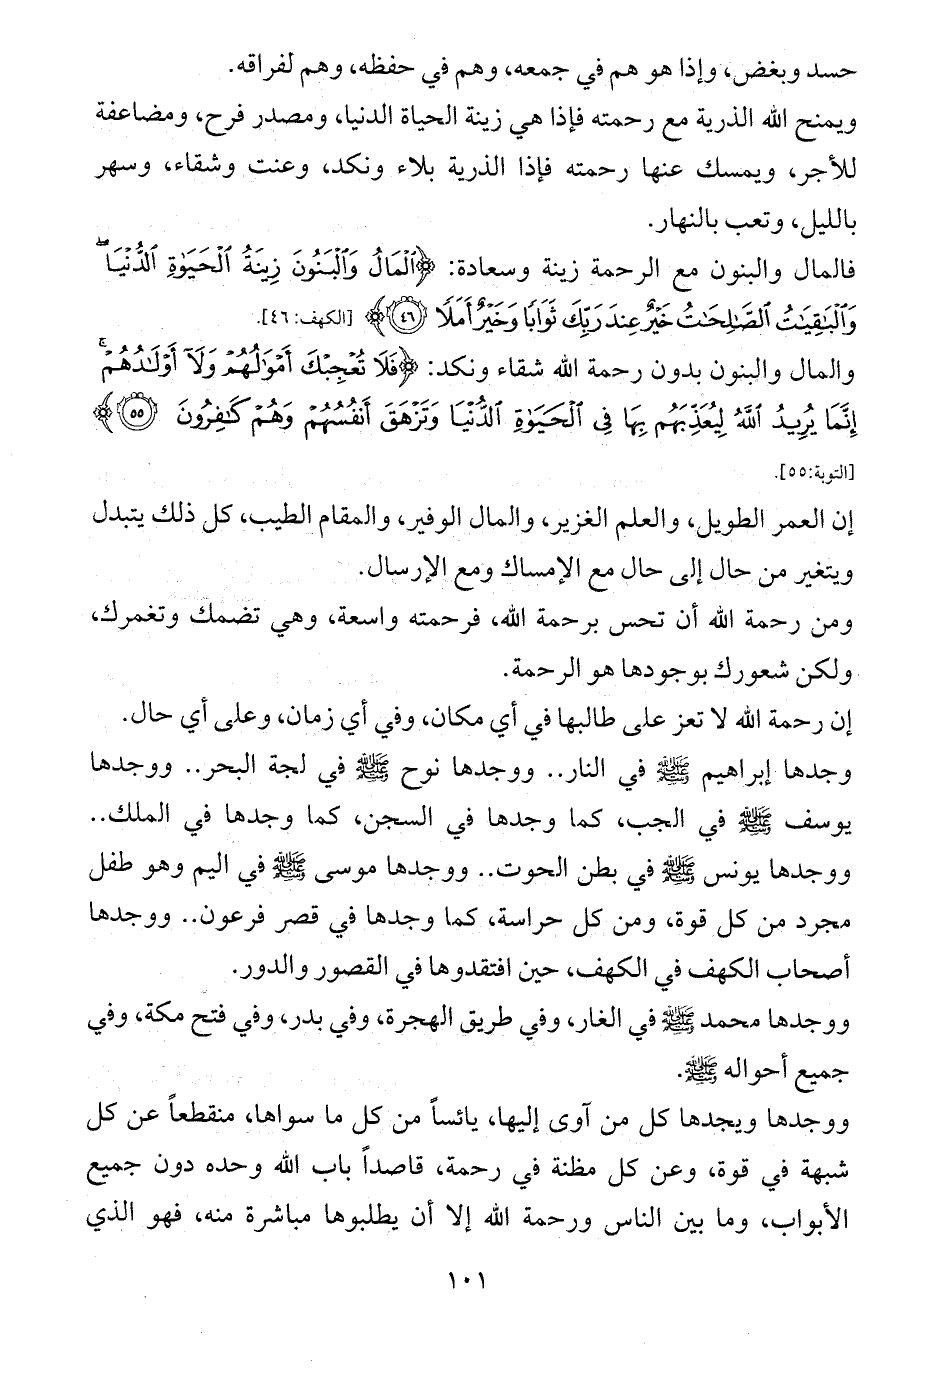 حسد وبغض، وإذا هو هم في جمعه، وهم في حفظه، وهم لفراقه.
ويمنح الله الذرية مع رحمته فإذا هي زينة الحياة الدنيا، ومصدر فرح، ومضاعفة
للأجر، ويمسك عنها رحمته فإذا الذرية بلاء ونكد، وعنت وشقاء، وسهر
بالليل، وتعب بالنهار.
فالمال والبنون مع الرحمة زينة وسعادة: ﴿ٱلْمَالُ وَٱلْبَنُونَ زِينَةُ ٱلْحَيَوٰةِ ٱلدُّنْيَا ۖ
وَٱلْبَٰقِيَٰتُ ٱلصَّٰلِحَٰتُ خَيْرٌ عِندَ رَبِّكَ ثَوَابًا وَخَيْرٌ أَمَلًا ٤٦﴾ [الكهف: ٤٦].
والمال والبنون بدون رحمة الله شقاء ونكد: ﴿فَلَا تُعْجِبْكَ أَمْوَٰلُهُمْ وَلَآ أَوْلَٰدُهُمْ ۚ
إِنَّمَا يُرِيدُ ٱللَّهُ لِيُعَذِّبَهُم بِهَا فِي ٱلْحَيَوٰةِ ٱلدُّنْيَا وَتَزْهَقَ أَنفُسُهُمْ وَهُمْ كَٰفِرُونَ ٥٥﴾
[التوبة:٥٥].
إن العمر الطويل، والعلم الغزير، والمال الوفير، والمقام الطيب، كل ذلك يتبدل
ويتغير من حال إلى حال مع الإمساك ومع الإرسال.
ومن رحمة الله أن تحس برحمة الله، فرحمته واسعة، وهي تضمك وتغمرك،
ولكن شعورك بوجودها هو الرحمة.
إن رحمة الله لا تعز على طالبها في أي مكان، وفي أي زمان، وعلى أي حال.
وجدها إبراهيم ﷺ في النار.. ووجدها نوح ﷺ في لجة البحر.. ووجدها
يوسف ﷺ في الجب، كما وجدها في السجن، كما وجدها في الملك..
ووجدها يونس ﷺ في بطن الحوت.. ووجدها موسى ﷺ في اليم وهو طفل
مجرد من كل قوة، ومن كل حراسة، كما وجدها في قصر فرعون.. ووجدها
أصحاب الكهف في الكهف، حين افتقدوها في القصور والدور.
ووجدها محمد ﷺ في الغار، وفي طريق الهجرة، وفي بدر، وفي فتح مكة، وفي
جميع أحواله ﷺ.
ووجدها ويجدها كل من آوى إليها، يائساً من كل ما سواها، منقطعاً عن كل
شبهة في قوة، وعن كل مظنة في رحمة، قاصداً باب الله وحده دون جميع
الأبواب، وما بين الناس ورحمة الله إلا أن يطلبوها مباشرة منه، فهو الذي
١٠١